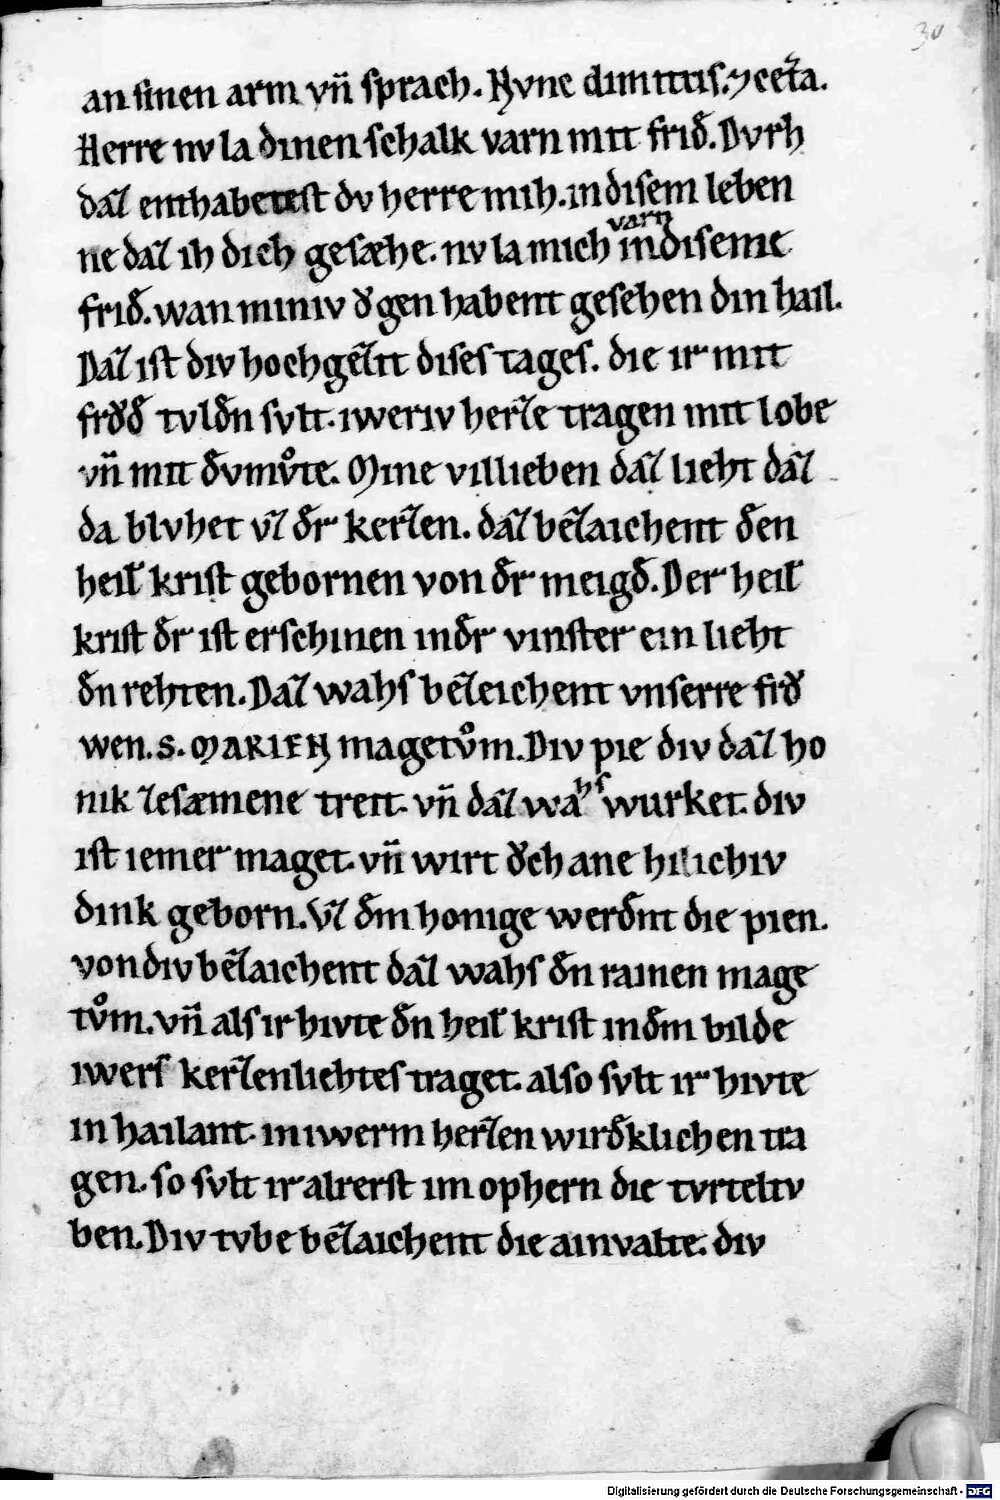 30
an sinen arm vn̄ sprach. Nvnc dimittis. ⁊ cet͛a.
Herre nv la dinen schalk varn mit frid̄. Dvrh
daꝫ enthabetest dv herre mih. in disem leben
ne daꝫ ih dich gesæhe. nv la mich varn in diseme
frid̄. wan miniv ǒgen habent gesehen din hail.
Daꝫ ist div hochgeꝫit dises tages. die ir mit
frǒd̄ tvld̄n svlt. iweriv herꝫe tragen mit lobe
vn̄ mit d̄vmvͦte. Mine villieben daꝫ lieht daꝫ
da blvhet vꝫ d̄r kerꝫen. daꝫ beꝫaichent d̄en
heil̄ krist gebornen von d̄r meigd̄. Der heil̄
krist d̄r ist erschinen in d̄r vinster ein lieht
d̄n rehten. Daꝫ wahs beꝫeichent vnserre frǒ
wen. S. MARIEN magetvͦm. Div pie div daꝫ ho
nik ꝫesæmene treit. vn̄ daꝫ wahs wurket. div
ist iemer maget. vn̄ wirt ǒch ane hilichiv
dink geborn. Vꝫ d̄m honige werd̄nt die pien.
von div beꝫaichent daꝫ wahs d̄n rainen mage
tvͦm. vn̄ als ir hivte d̄n heil̄ krist in d̄m bilde
iwers kerꝫenliehtes traget. also svlt ir hivte
in hailant. in iwerm herꝫen wird̄klichen tra
gen. so svlt ir alrerst im ophern die tvrteltv
ben. Div tvbe beꝫaichent die ainvalte. div
Digitalisierung gefördert durch die Deutsche Forschungsgemeinschaft - DFG